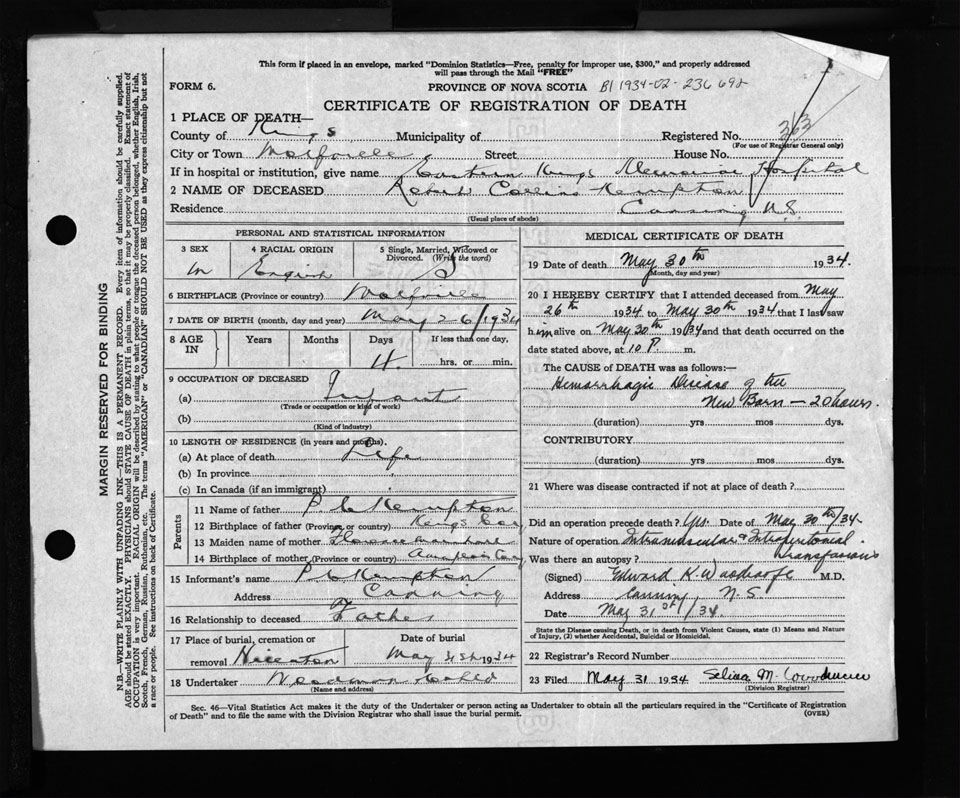 This form if placed in an envelope, marked "Dominion Statistics—Free, penalty for improper use, $300," and properly addressed
will pass through the Mail "FREE"
FORM 6.
PROVINCE OF NOVA SCOTIA B1 1934-02-236692
CERTIFICATE OF REGISTRATION OF DEATH
1 PLACE OF DEATH—
County of Kings Municipality of Registered No. 363
(For use of Registrar General only)
City or Town Wolfville Street House No.
If in hospital or institution, give name Eastern Kings Memorial Hospital
2 NAME OF DECEASED Robert Collins Kempton
Residence Canning N.S.
(Usual place of abode)
PERSONAL AND STATISTICAL INFORMATION
3 SEX 4 RACIAL ORIGIN 5 Single, Married, Widowed or
Divorced. (Write the word)
m English S
6 BIRTHPLACE (Province or country) Wolfville
7 DATE OF BIRTH (month, day and year) May 26/1934
8 AGE IN Years Months Days If less than one day,
4 hrs. or min.
9 OCCUPATION OF DECEASED
(a) Infant
(Trade or occupation or kind of work)
(b)
(Kind of industry)
10 LENGTH OF RESIDENCE (in years and months).
(a) At place of death Life
(b) In province
(c) In Canada (if an immigrant)
Parents
11 Name of father P C Kempton
12 Birthplace of father (Province or country) Kings Coy
13 Maiden name of mother Florence
14 Birthplace of mother (Province or country) Annapolis Coy
15 Informant's name P C Kempton
Address Canning
16 Relationship to deceased Father
17 Place of burial, cremation or Date of burial
removal May 31st 1934
18 Undertaker
(Name and address)
MEDICAL CERTIFICATE OF DEATH
19 Date of death May 30th 1934.
(Month, day and year)
20 I HEREBY CERTIFY that I attended deceased from May
26th 1934 to May 30th 1934 that I last saw
him alive on May 30th 1934 and that death occurred on the
date stated above, at 10 P. m.
The CAUSE of DEATH was as follows:—
Hemorrhagic Disease of the
New Born — 20 hours.
(duration) yrs mos dys.
CONTRIBUTORY
(duration) yrs mos dys.
21 Where was disease contracted if not at place of death?
Did an operation precede death? Yes. Date of May 30th/34
Nature of operation Intramuscular & Intraperitoneal
transfusions
Was there an autopsy?
(Signed) Edward K. Woodroofe M.D.
Address Canning, N.S.
Date May 31st/34
State the Disease causing Death, or in death from Violent Causes, state (1) Means and Nature
of Injury, (2) whether Accidental, Suicidal or Homicidal.
22 Registrar's Record Number
23 Filed May 31 1934 M.
(Division Registrar)
Sec. 46—Vital Statistics Act makes it the duty of the Undertaker or person acting as Undertaker to obtain all the particulars required in the "Certificate of Registration
of Death" and to file the same with the Division Registrar who shall issue the burial permit.
(OVER)
MARGIN RESERVED FOR BINDING
N.B.—WRITE PLAINLY WITH UNFADING INK—THIS IS A PERMANENT RECORD. Every item of information should be carefully supplied.
AGE should be stated EXACTLY. PHYSICIANS should STATE CAUSE OF DEATH in plain terms, so that it may be properly classified. Exact statement of
OCCUPATION is very important. RACIAL ORIGIN will be described by stating to what people or tongue the deceased person belonged, whether English, Irish,
Scotch, French, German, Russian, Ruthenian, etc. The terms "AMERICAN" or "CANADIAN" SHOULD NOT BE USED as they express citizenship but not
a race or people. See instructions on back of Certificate.